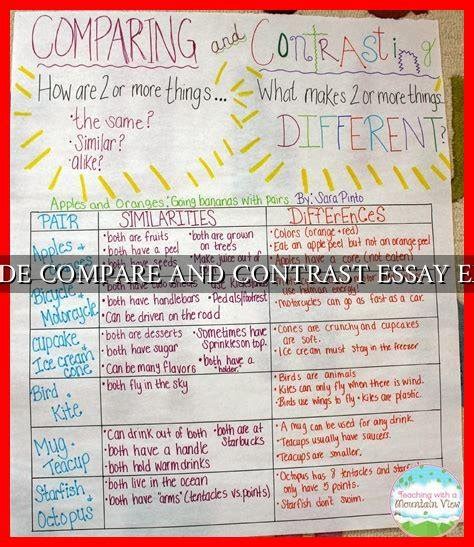 COMPARING and CONTRASTING
How are 2 or more things...
• the same?
• Similar?
• alike?
What makes 2 or more things
DIFFERENT?
Apples and Oranges: Going bananas with pairs By: Sara Pinto
PAIR
SIMILARITIES
DiffErENCeS
Apples +
• both are fruits • both are grown on trees
• both have a peel
• both have seeds • Make juice out of
• Colors (orange + red)
• Eat an apple peel but not an orange peel
• Apples have a core (not eaten)
DE COMPARE AND CONTRAST ESSAY E
Bicycle +
Motorcycle
• both have handlebars • Pedals/footrest
• Can be driven on the road
use human energy!
• Motorcycles can go as fast as a car.
Cupcake +
Ice cream cone
• both are desserts • Sometimes have sprinkles on top.
• both have sugar
• Can be many flavors • both have a "holder"
• Cones are crunchy and cupcakes are soft.
• Ice cream must stay in the freezer
Bird +
Kite
• both fly in the sky
• Birds are animals
• Kites can only fly when there is wind.
• Birds use wings to fly • kites are plastic.
Mug +
Teacup
• Can drink out of both • both are at Starbucks
• both have a handle
• both hold warm drinks
• A mug can be used for any drink.
• Teacups usually have saucers.
• Teacups are smaller.
Starfish +
Octopus
• both live in the ocean
• both have "arms" (tentacles vs. points)
• Octopus has 8 tentacles and starfish only have 5 points.
• Starfish don't swim.
Teaching with a
Mountain View